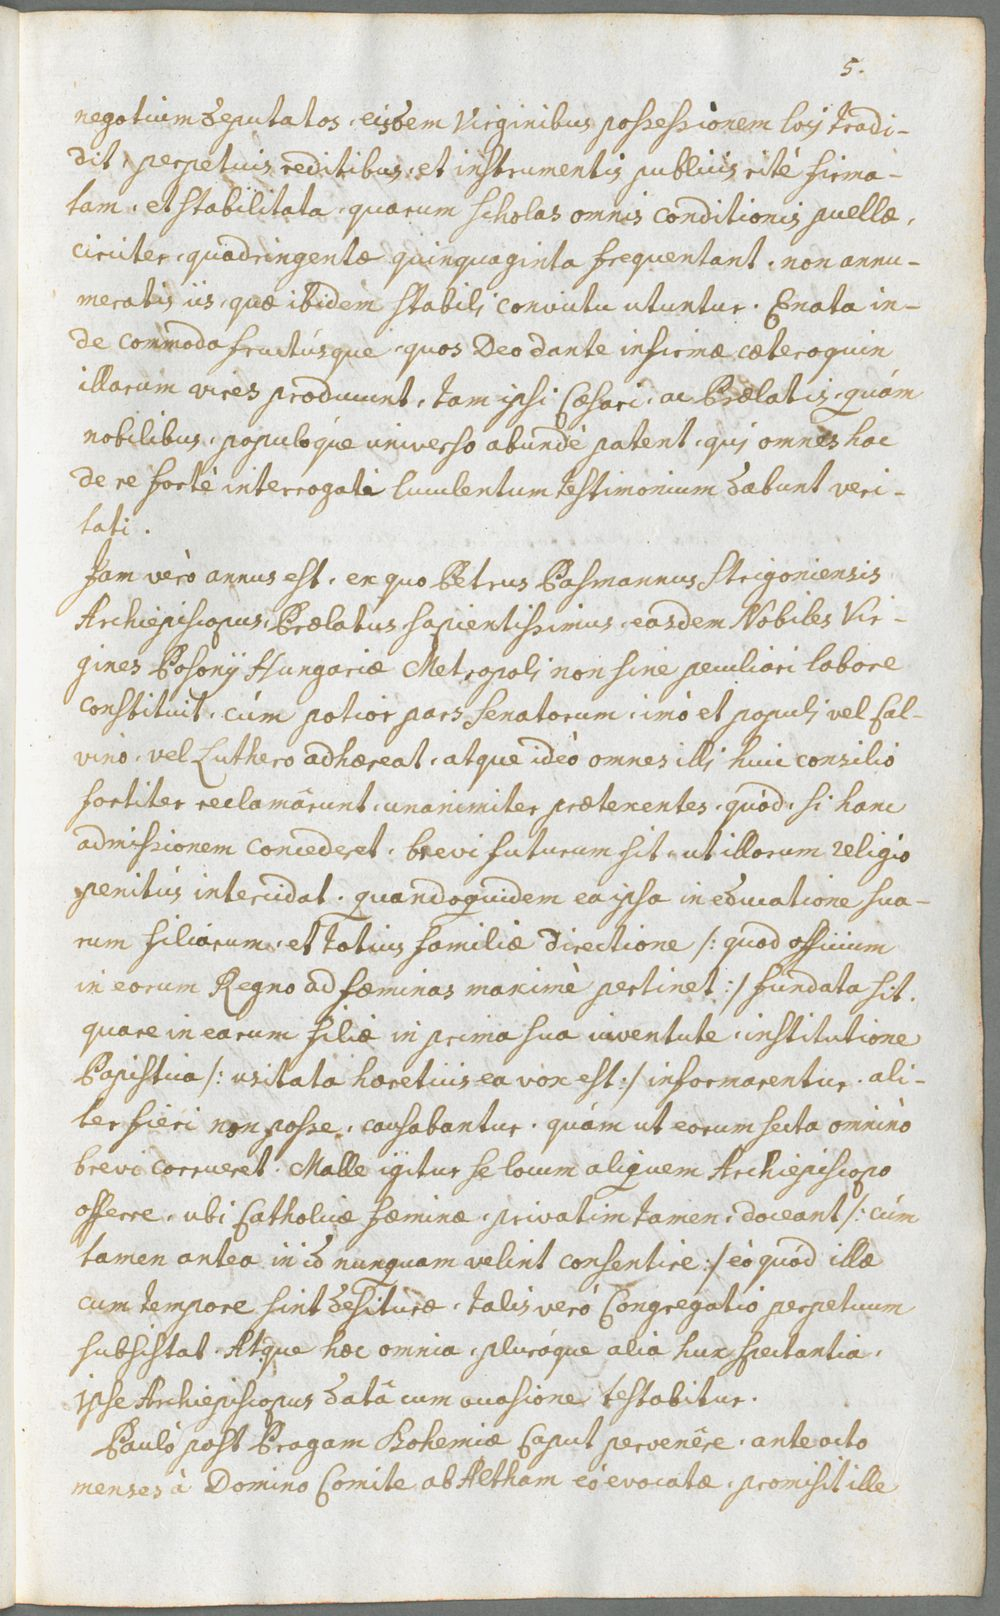 5.
negotium deputatos, eisdem Virginibus possessionem loci tradi-
dit, perpetuis reditibus, et instrumentis publicis rité firma-
tam, et stabilitata, quarum scholas omnis conditionis puellæ,
circiter, quadringentæ quinquaginta frequentant, non annu-
meratis iis, quæ ibidem stabili convictu utuntur. Enata in-
de commoda fructúsque, quos Deo dante infirmæ cæteroquin
illarum vires producunt, tam ipsi Cæsari, ac Prælatis, quám
nobilibus, populóque universo abundè patent, qui omnes hac
de re fortè interrogati luculentum testimonium dabunt veri-
tati.
Jam verò annus est, ex quo Petrus Pasmannus Strigoniensis
Archiepiscopus, Prælatus sapientissimus, easdem Nobiles Vir-
gines Posonij Hungariæ Metropoli non sine peculiari labore
constituit, cúm potior pars Senatorum, imò et populi vel Cal-
vino, vel Luthero adhæreat, atque ideò omnes illi huic consilio
fortiter reclamârunt, unanimiter prætexentes, quòd, si hanc
admissionem concederet, brevi futurum sit, ut illorum religio
penitús intercidat, quandoquidem ea ipsa in educatione sua-
rum filiarum, et totius familiæ directione /: quod officium
in eorum Regno ad fæminas maximè pertinet :/ fundata sit.
quare in earum filiæ in prima sua iuventute, institutione
Papistica /: usitata hæreticis ea vox est :/ informarentur, ali-
ter fieri non posse, causabantur, quám ut eorum secta omninò
brevi corrueret. Malle igitur se locum aliquem Archiepiscopo
offerre, ubi Catholicæ fæminæ, privatim tamen, doceant /: cúm
tamen antea in id nunquam velint consentire :/ eò quòd illæ
cum tempore sint desituræ, talis veró Congregatio perpetuum
subsistat. Atque hæc omnia, pluráque alia huc spectantia,
ipse Archiepiscopus datâ cum occasione testabitur.
Pauló post Pragam Bohemiæ Caput pervenêre, ante octo
menses à Domino Comite ab Altham eó evocatæ, promisit ille